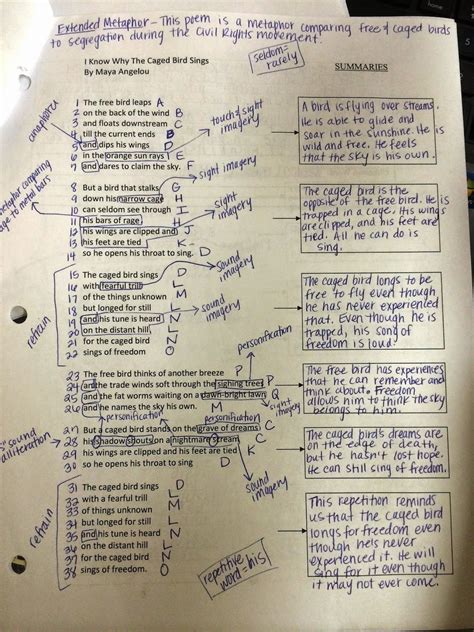 Extended Metaphor – This poem is a metaphor comparing free & caged birds
to segregation during the Civil Rights movement!
I Know Why The Caged Bird Sings
By Maya Angelou
seldom=
rarely
SUMMARIES
anaphora
1 The free bird leaps A
2 on the back of the wind B
3 and floats downstream C
4 till the current ends B
5 and dips his wings D
6 in the orange sun rays E
7 and dares to claim the sky. F
touch & sight
imagery
sight imagery
A bird is flying over streams.
He is able to glide and
soar in the sunshine. He is
wild and free. He feels
that the sky is his own.
metaphor comparing
cage to metal bars
8 But a bird that stalks G
9 down his narrow cage H
10 can seldom see through I
11 his bars of rage H
12 his wings are clipped and J
13 his feet are tied K
14 so he opens his throat to sing. D
sight
imagery
The caged bird is the
opposite of the free bird. He is
trapped in a cage. His wings
are clipped, and his feet are
tied. All he can do is
sing.
refrain
15 The caged bird sings D
16 with fearful trill L
17 of the things unknown M
18 but longed for still L
19 and his tune is heard N
20 on the distant hill L
21 for the caged bird N
22 sings of freedom O
sound
imagery
sound
imagery
The caged bird longs to be
free to fly even though
he has never experienced
that. Even though he is
trapped, his song of
freedom is loud.
personification
23 The free bird thinks of another breeze P
24 and the trade winds soft through the sighing trees P
25 and the fat worms waiting on a dawn-bright lawn Q
26 and he names the sky his own. M
sight
imagery
The free bird has experiences
that he can remember and
think about. Freedom
allows him to think the sky
belongs to him.
personification
personification
"S" sound
alliteration
27 But a caged bird stands on the grave of dreams C
28 his shadow shouts on a nightmare scream C
29 his wings are clipped and his feet are tied K
30 so he opens his throat to sing D
sound
imagery
The caged bird's dreams are
on the edge of death,
but he hasn't lost hope.
He can still sing of freedom.
refrain
31 The caged bird sings D
32 with a fearful trill L
33 of things unknown M
34 but longed for still L
35 and his tune is heard N
36 on the distant hill L
37 for the caged bird N
38 sings of freedom. O
repetitive
word=his
This repetition reminds
us that the caged bird
longs for freedom even
though he's never
experienced it. He will
sing for it even though
it may not ever come.